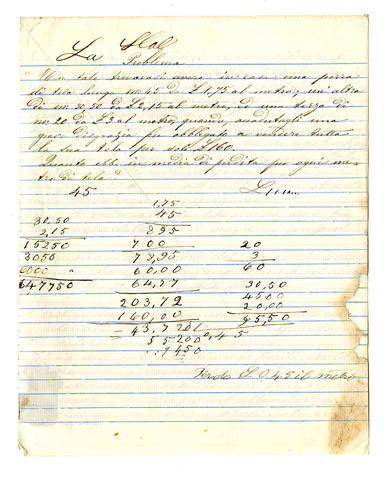 La
Problema
Un tale trovavasi avere in casa una pezza
di tela lunga m. 45 di £ 1,75 al metro; un'altra
di m. 30,50 da £ 2,15 al metro, ed una terza di
m. 20 da £ 3 al metro, quando, accadutagli una
disgrazia fu obbligato a vendere tutta
la sua tela per sole £ 160.
Quanto ebbe in media di perdita per ogni me-
tro di tela?
45
1,75
45
895
700
78,95
60,00
64,77
203,72
160,00
43,720
5 5200 0,45
7450
30,50
2,15
15250
3050
6000 "
647750
20
3
60
30,50
45,00
20,00
95,50
£. 0,45 il metro